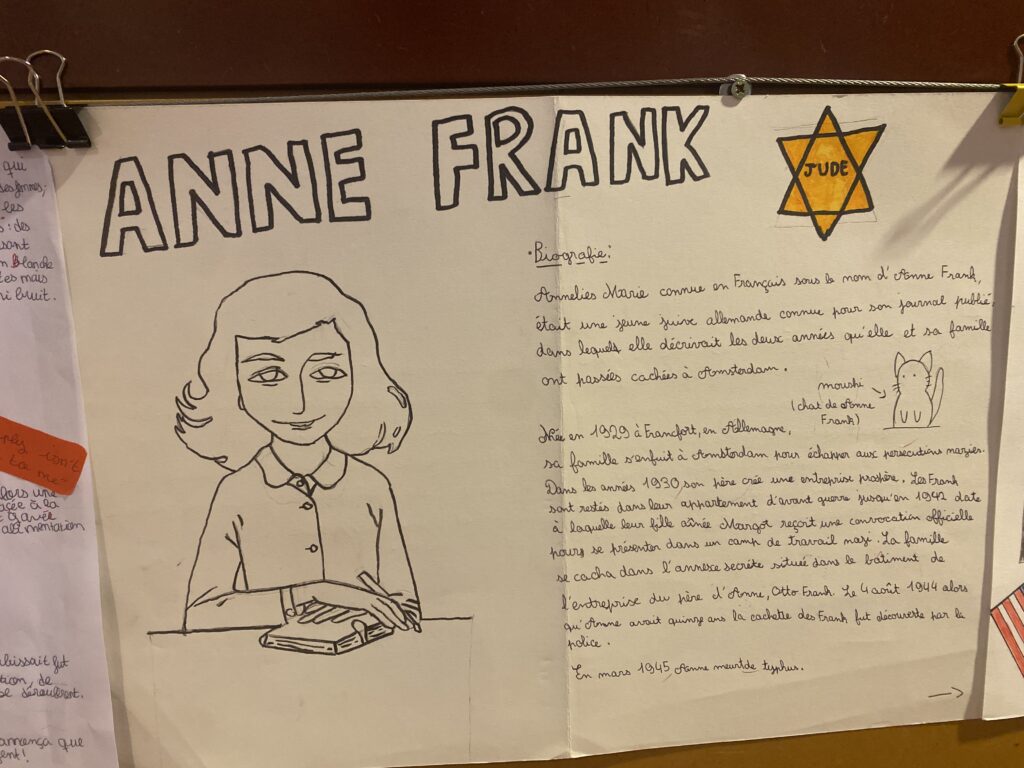 ANNE FRANK
JUDE
• Biografie:
Annelies Marie connue en Français sous le nom d'Anne Frank,
était une jeune juive allemande connue pour son journal publié,
dans lequel elle décrivait les deux années qu'elle et sa famille
ont passées cachées à Amsterdam.
moushi
(chat de Anne
Frank)
Née en 1929 à Francfort, en Allemagne,
sa famille s'enfuit à Amsterdam pour échapper aux persécutions nazies.
Dans les années 1930 son père crée une entreprise prospère. Les Frank
sont restés dans leur appartement d'avant guerre jusqu'en 1942 date
à laquelle leur fille aînée Margot reçoit une convocation officielle
pour se présenter dans un camp de travail nazi. La famille
se cacha dans l'annexe secrète située dans le batiment de
l'entreprise du père d'Anne, Otto Frank. Le 4 août 1944 alors
qu'Anne avait quinze ans la cachette des Frank fut découverte par la
police.
En mars 1945 Anne meurt de typhus.
qui
les
: des
blanche
mais
bruit.
isn't
me"
alors une
à la
alimentation
fut
de
se déroulèrent.
que